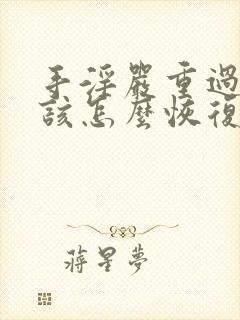 手淫嚴重過
該怎麼恢復
蔣星夢